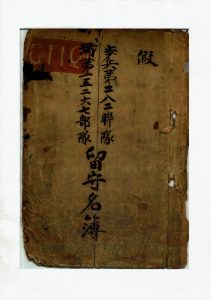 假
歩兵第二八二聯隊
満第一五二六七部隊
留守名簿